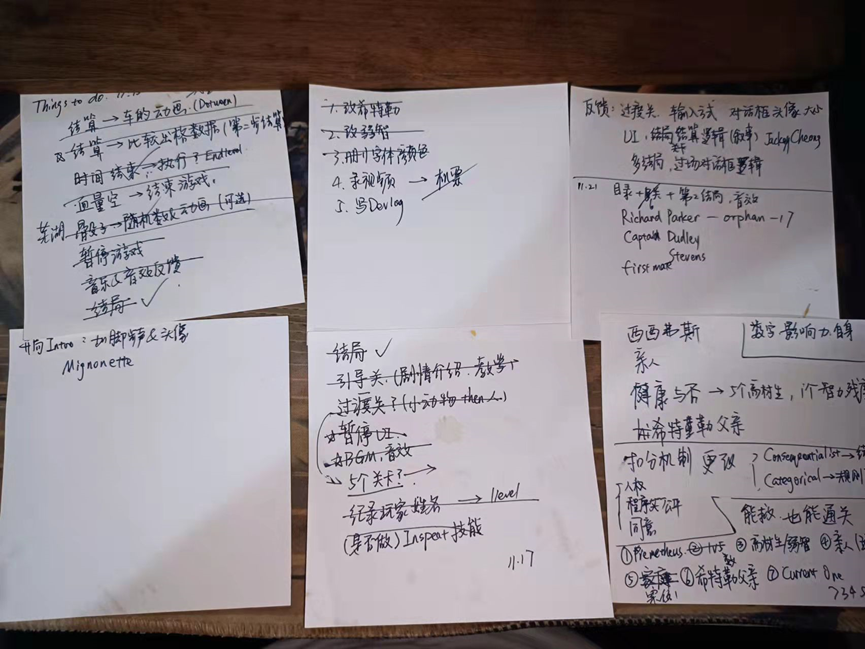 Things to do. 11.15
结算→车的动画.(Dotween)
结算→比较出格数据(第二次结算)
时间结束→执行了Endlevel
血量空→结束游戏.
骰子→随机 动画(可选)
暂停游戏
音乐&音效反馈
结局 ✓
1. 改希特勒
2. 改
3. 册小字体颜色
4. 录视频→机票
5. 写Devlog
反馈: 过渡关. 输入方式 对话框头像大小
UI, 结局结算逻辑(叙事) Jacky Cheong
多结局, 过场对话框逻辑
11.21 目录+ 关+第2结局, 音效
Richard Parker — orphan — 17
Captain Dudley
first mate Stevens
Intro: 加脚步声&头像
Mignonette
结局 ✓
引导关.(剧情介绍.教学)
过渡关?(小动物 then 人)
暂停UI.
BGM, 音效
5个关卡?→
纪录玩家姓名 → 1level
(是否做) Inspect 技能
11.17
西西弗斯
数字 影响力.自身
亲人
健康与否→5个高材生, 1个智力残
希特勒父亲
扣分机制 更改
Consequentialist→
Categorical→规则
人权
程序公平
同意
能救 也能通关
①Prometheus ② ③高材生 ④亲人
⑤家庭 ⑥希特勒父亲 ⑦Current One
累值!
7345